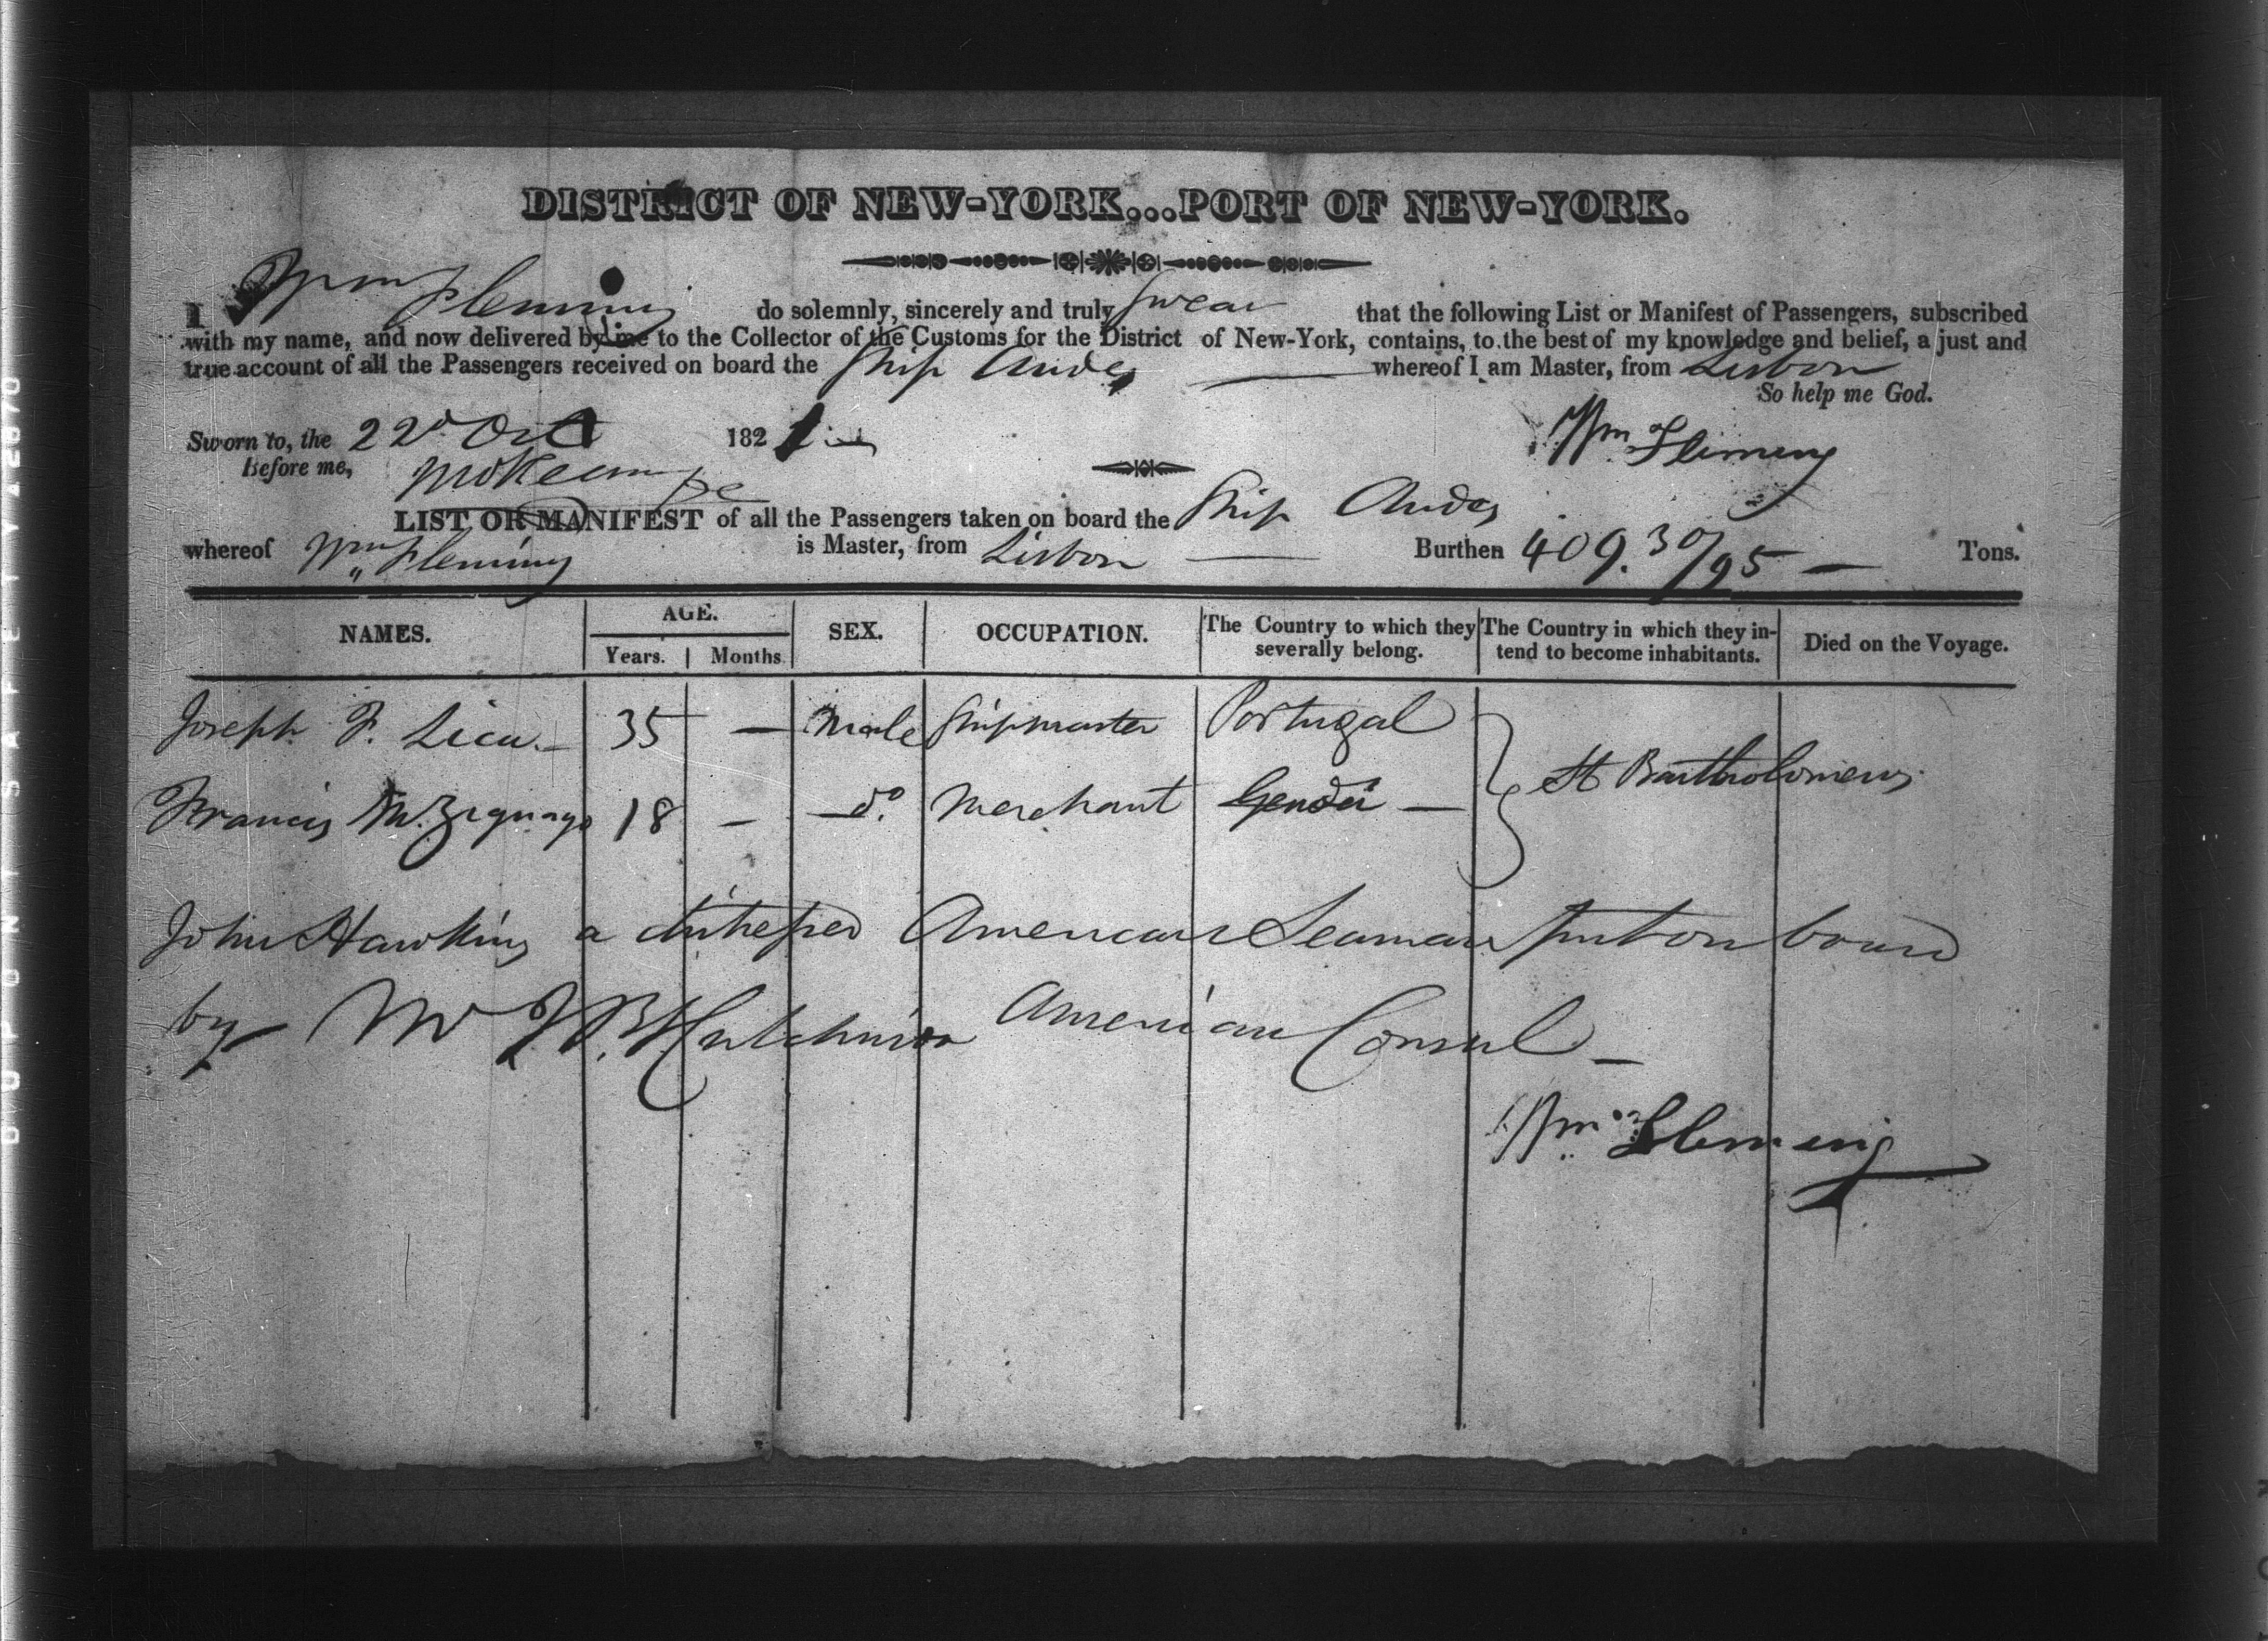 DISTRICT OF NEW-YORK...PORT OF NEW-YORK.
I Wm Fleming do solemnly, sincerely and truly swear that the following List or Manifest of Passengers, subscribed
with my name, and now delivered by me to the Collector of the Customs for the District of New-York, contains, to the best of my knowledge and belief, a just and
true account of all the Passengers received on board the Ship Andes — whereof I am Master, from Lisbon
So help me God.
Sworn to, the 22d Oct 1821
Before me,
Wm Fleming
LIST OR MANIFEST of all the Passengers taken on board the Ship Andes
whereof Wm Fleming is Master, from Lisbon — Burthen 409.30/95 — Tons.
NAMES. AGE. SEX. OCCUPATION. The Country to which they severally belong. The Country in which they intend to become inhabitants. Died on the Voyage.
Years. Months
Joseph F. 35 — Male Shipmaster Portugal
St Bartholomews
Francis M. 18 — do. Merchant —
John Hawkins a distressed American Seaman put on board
by Mr Hutchinson American Consul —
Wm Fleming